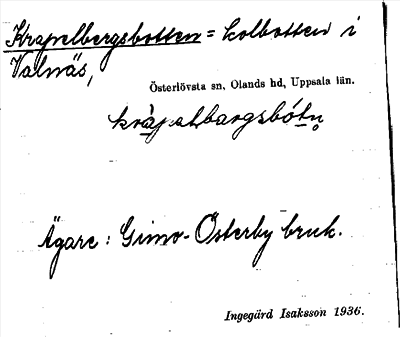 Krapelbergsbotten = kolbotten i
Valnäs,
Österlövsta sn, Olands hd, Uppsala län.
Ägare: Gimo-Österby bruk.
Ingegärd Isaksson 1936.